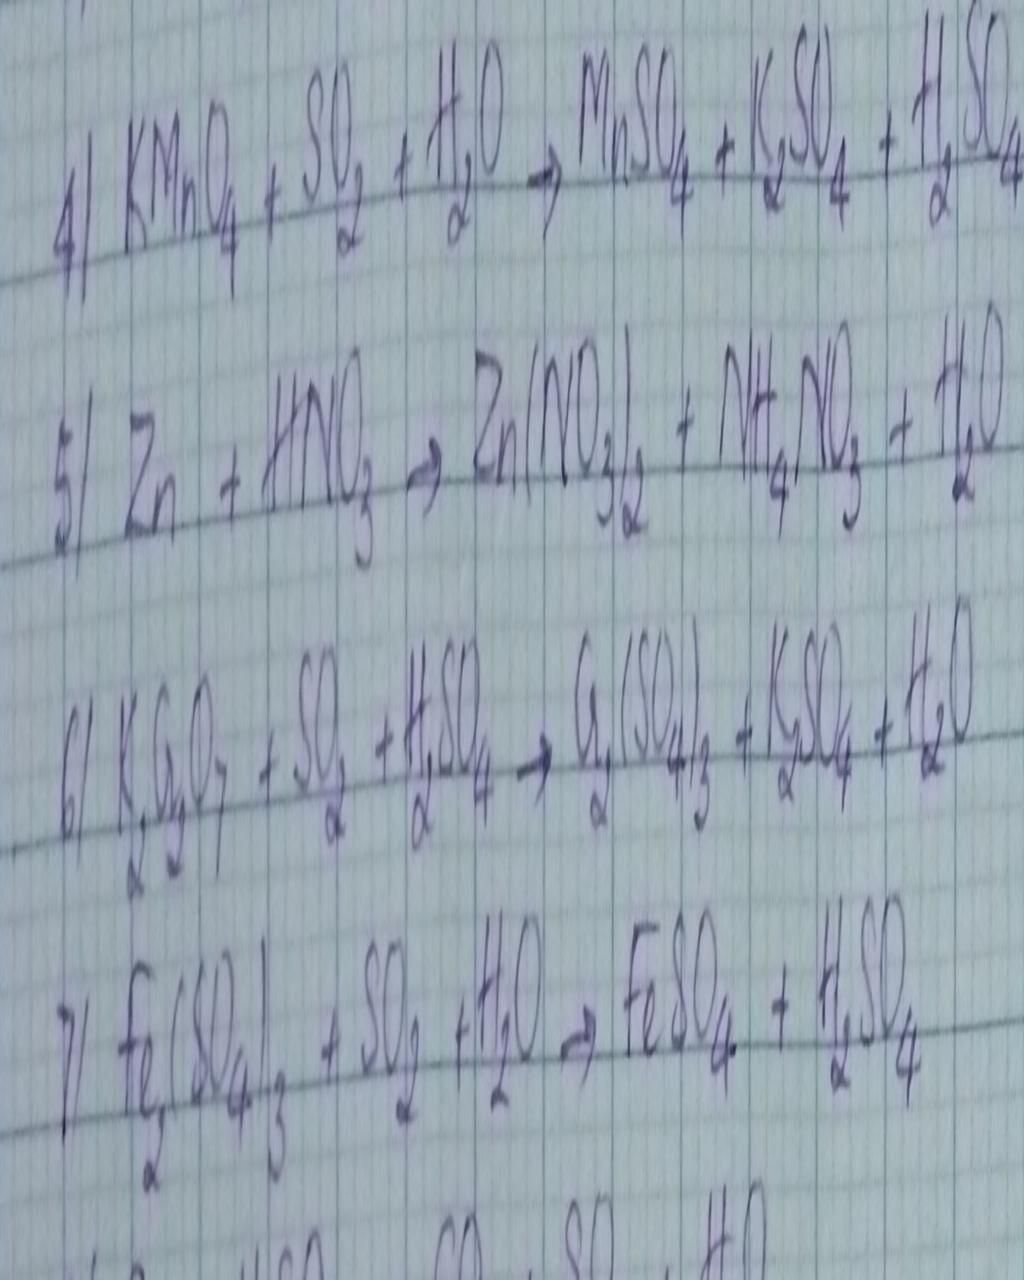 4) KMnO₄ + SO₂ + H₂O → MnSO₄ + K₂SO₄ + H₂SO₄
5) Zn + HNO₃ → Zn(NO₃)₂ + NH₄NO₃ + H₂O
6) K₂Cr₂O₇ + SO₂ + H₂SO₄ → Cr₂(SO₄)₃ + K₂SO₄ + H₂O
7) Fe₂(SO₄)₃ + SO₂ + H₂O → FeSO₄ + H₂SO₄